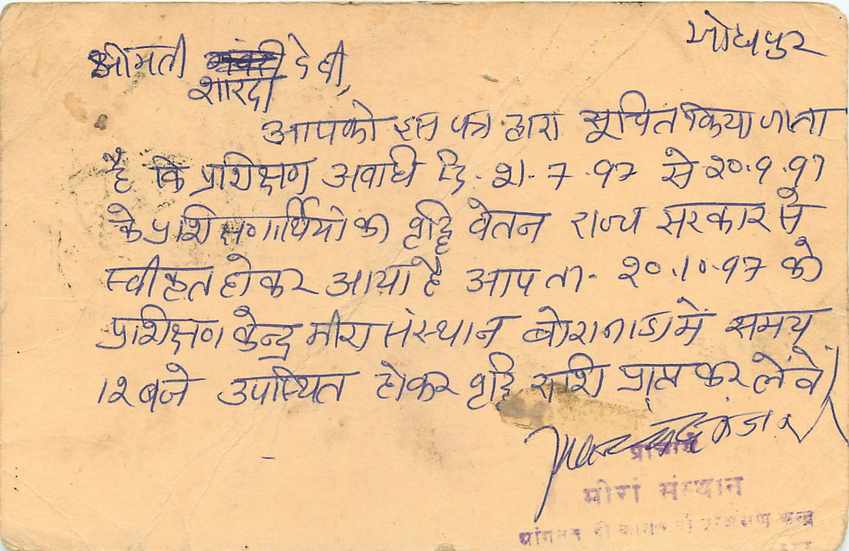 जोधपुर
श्रीमती देवी,
शारदा
आपको इस पत्र द्वारा सूचित किया जाता
है कि प्रशिक्षण अवधि दि. 21.7.97 से 20.9.97
के प्रशिक्षणार्थियो का वृद्दि वेतन राज्य सरकार से
स्वीकृत होकर आया है आप ता. 20.10.97 को
प्रशिक्षण केन्द्र मीरा संस्थान बोरानाडा मे समय
12 बजे उपस्थित होकर वृद्दि राशि प्राप्त कर लेंवे।
मीरां संस्थान